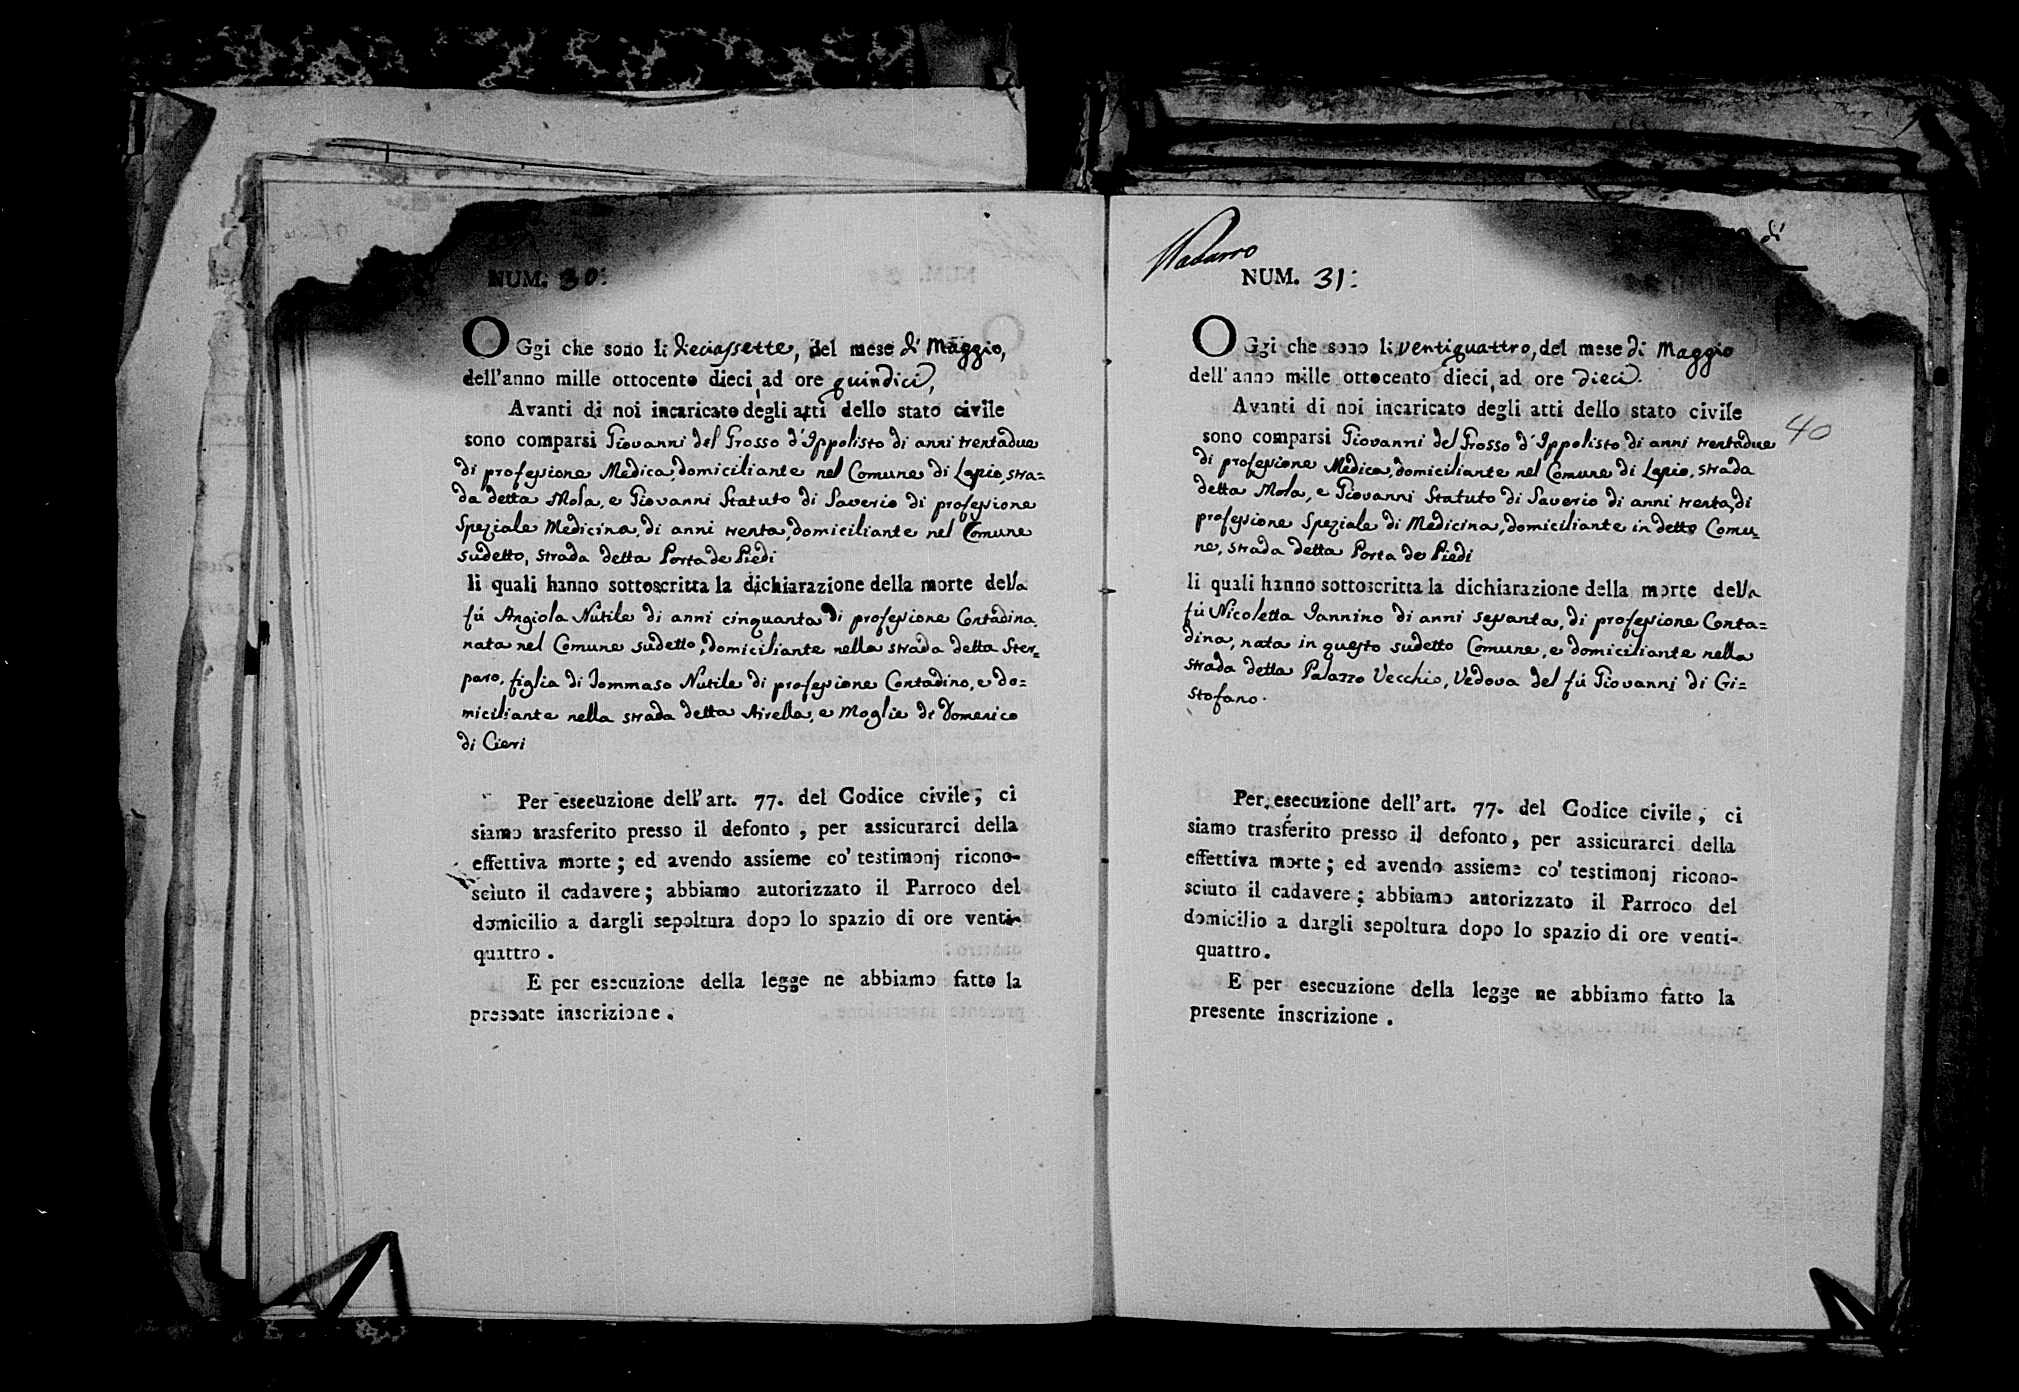 NUM. 30:
OGgi che sono li dieciassette, del mese di Maggio,
dell'anno mille ottocento dieci, ad ore quindici,
Avanti di noi incaricato degli atti dello stato civile
sono comparsi Giovanni del Grosso d'Ippolisto di anni trentadue
di professione Medica, domiciliante nel Comune di Lapio, stra=
da detta Mola, e Giovanni Statuto di Saverio di professione
Speziale Medicina, di anni trenta, domiciliante nel Comune
sudetto, strada detta Porta de Piedi
li quali hanno sottoscritta la dichiarazione della morte della
fù Angiola Nutile di anni cinquanta di professione Contadina,
nata nel Comune sudetto, domiciliante nella strada detta Ster=
paro, figlia di Tommaso Nutile di professione Contadino, e do=
miciliante nella strada detta Airella, e Moglie di Domenico
di Cieri
Per esecuzione dell'art. 77. del Codice civile, ci
siamo trasferito presso il defonto, per assicurarci della
effettiva morte; ed avendo assieme co' testimonj ricono-
sciuto il cadavere; abbiamo autorizzato il Parroco del
domicilio a dargli sepoltura dopo lo spazio di ore venti-
quattro.
E per esecuzione della legge ne abbiamo fatto la
presente inscrizione.
di
NUM. 31:
OGgi che sono li ventiquattro, del mese di Maggio
dell'anno mille ottocento dieci, ad ore dieci.
Avanti di noi incaricato degli atti dello stato civile
40
sono comparsi Giovanni del Grosso d'Ippolisto di anni trentadue
di professione Medica, domiciliante nel Comune di Lapio, strada
detta Mola, e Giovanni Statuto di Saverio di anni trenta, di
professione Speziale di Medicina, domiciliante in detto Comu=
ne, strada detta Porta de Piedi
li quali hanno sottoscritta la dichiarazione della morte della
fù Nicoletta Iannino di anni sessanta, di professione Conta=
dina, nata in questo sudetto Comune, e domiciliante nella
strada detta Palazzo Vecchio, Vedova del fù Giovanni di Gi=
stofano.
Per esecuzione dell'art. 77. del Codice civile, ci
siamo trasferito presso il defonto, per assicurarci della
effettiva morte; ed avendo assieme co' testimonj ricono-
sciuto il cadavere; abbiamo autorizzato il Parroco del
domicilio a dargli sepoltura dopo lo spazio di ore venti-
quattro.
E per esecuzione della legge ne abbiamo fatto la
presente inscrizione.